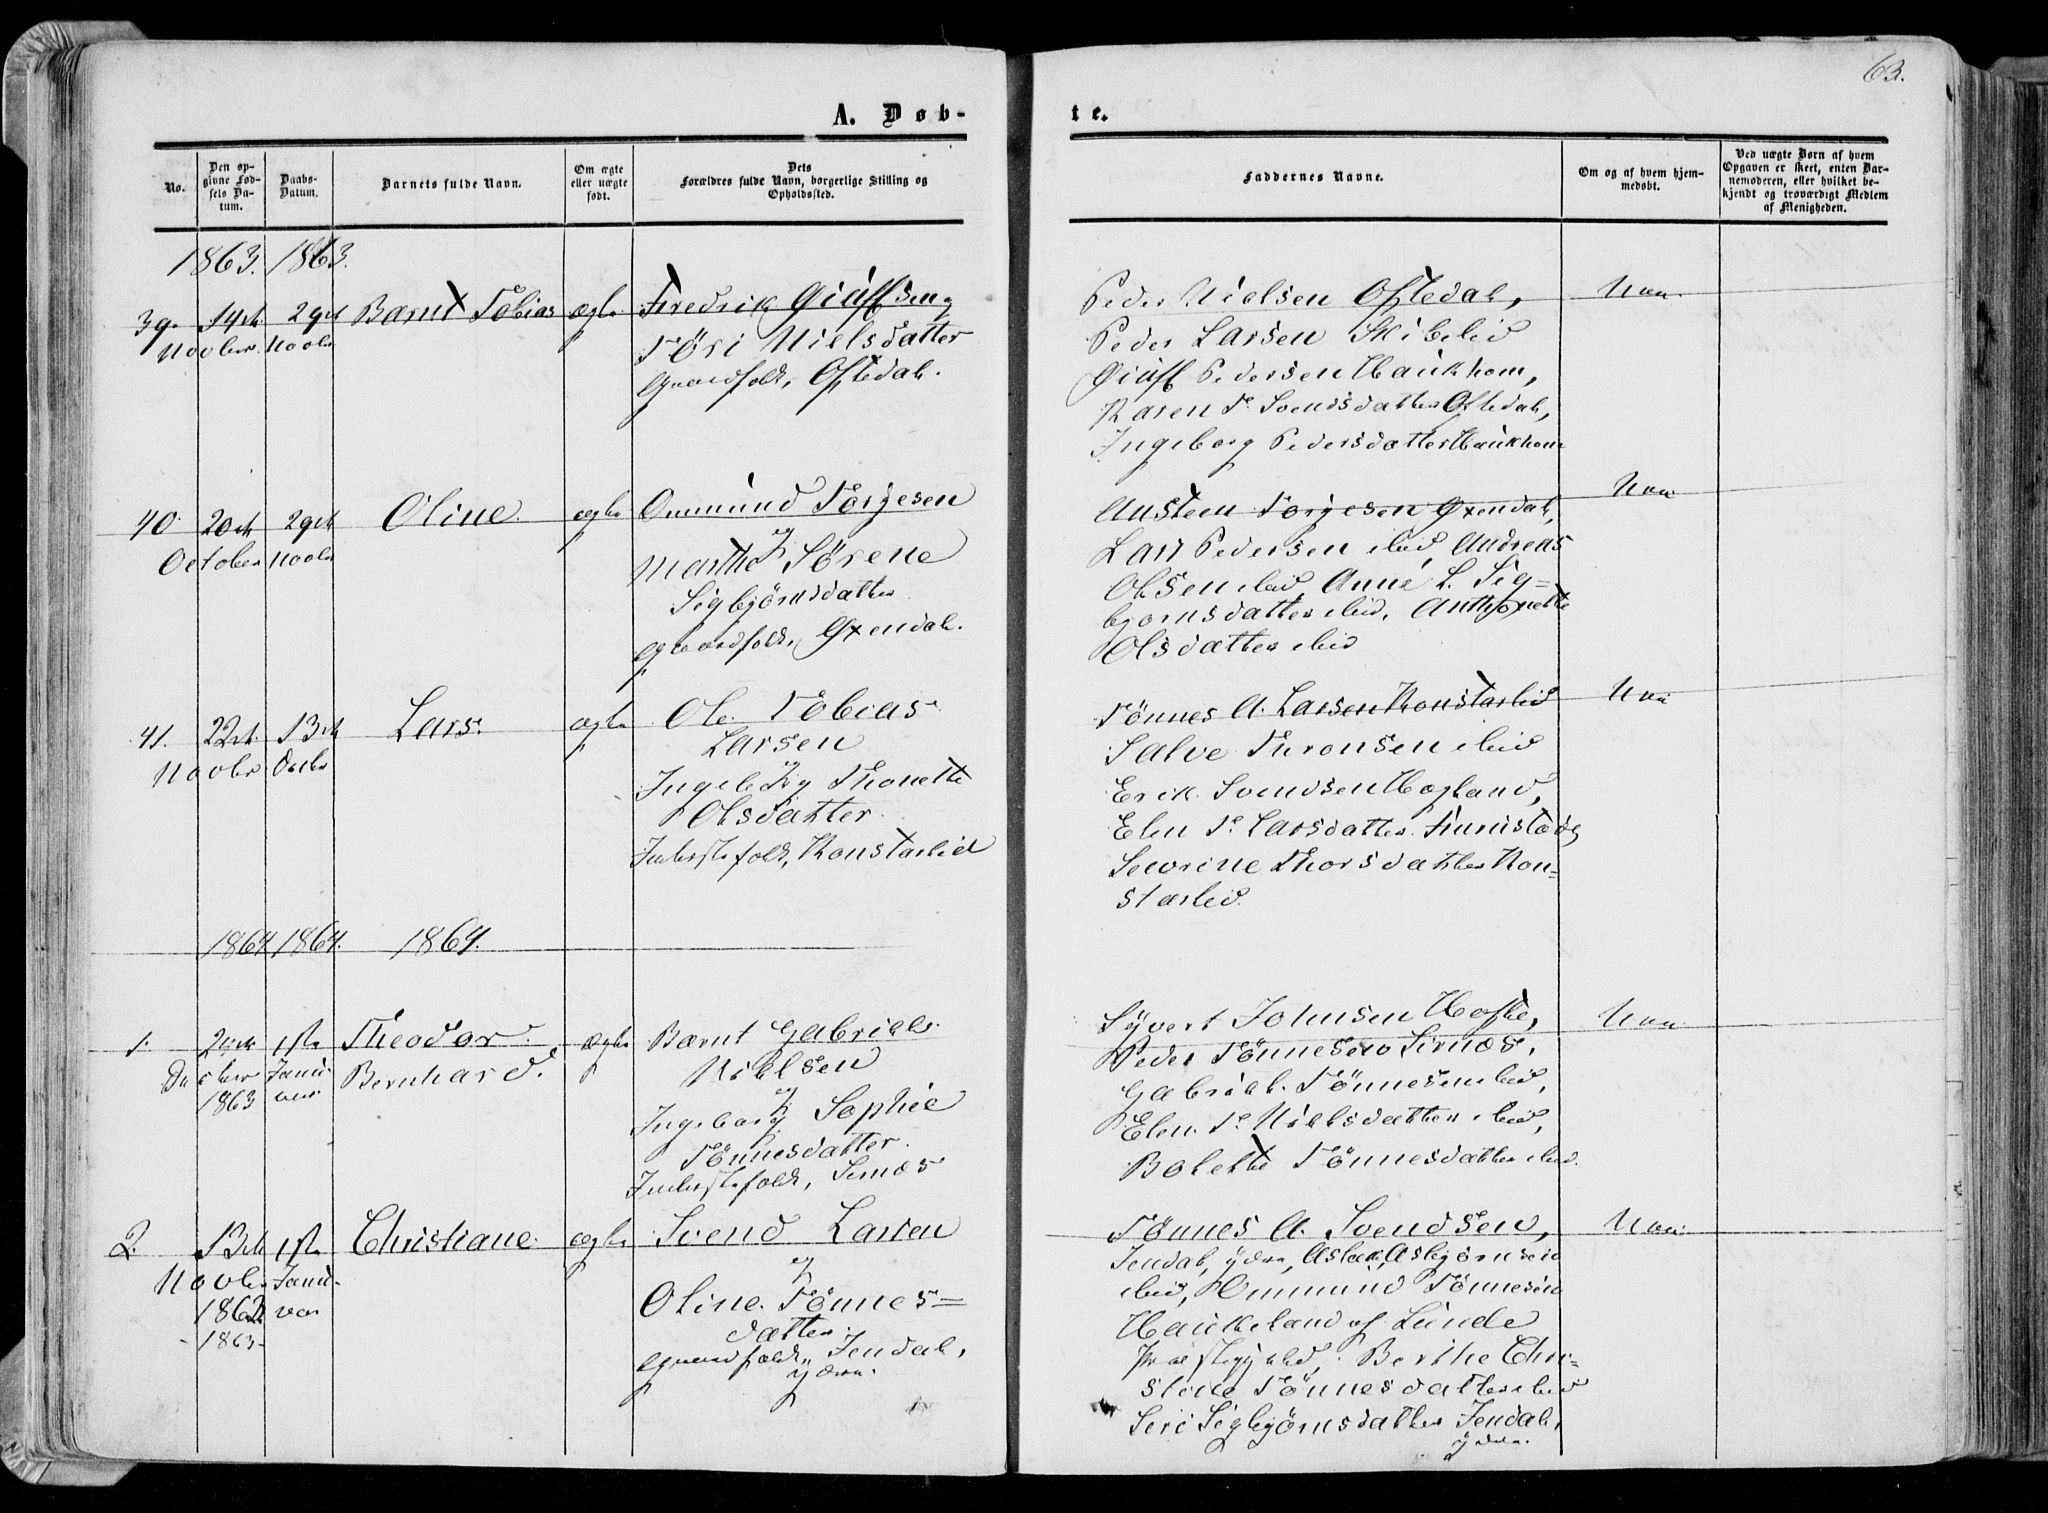 63.
A. Døb-
te.
No.
Den op-
givne Fød-
sels Da-
tum.
Daabs-
Datum.
Barnets fulde Navn.
Om ægte
eller uægte
født.
Dets
Forældres fulde Navn, borgerlige Stilling og
Opholdssted.
Faddernes Navne.
Om og af hvem hjem-
medøbt.
Ved uægte Børn af hvem
Opgaven er skeet, enten Bar-
nemoderen, eller hvilket be-
kjendt og troværdigt Medlem
af Menigheden.
1863. 1863.
39. 14de 29de Bernt Tobias ægte Fredrik
Novber Novbr Tøri Nielsdatter
Gaardfolk, Oftedal.
Peder Nielsen Oftedal,
Peder Larsen Skibelid
Pedersen Haukhom,
Karen T. Svendsdatter Oftedal,
Ingeborg Pedersdatter Haukhom
40. 20de 29de Oline. ægte Ommund Torgesen
October Novbr og
Martha Sørene
Sigbjørnsdatter
Gaardfolk, Øxendal.
Austen Torgesen Øxendal,
Lars Pedersen ibid, Andreas
Olsen ibid, Anne L. Sig=
bjørnsdatter ibid, Anthonette
Olsdatter ibid
41. 22de 13de Lars. ægte Ole Tobias
Novbr Decbr Larsen
og
Ingeborg Thonette
Olsdatter.
Inderstefolk, Konstarlid
Tønnes A. Larsen Konstarlid
Salve Thronsen ibid
Erik Svendsen Hogland,
Elen T. Larsdatter
Severine Thorsdatter Kon=
starlid.
1864. 1864. 1864.
1. 1ste Theodor ægte Bernt Gabriel
Decbr Janu- Bernhard.
1863 uar Nielsen
og
Ingeborg Sophie
Tønnesdatter.
Inderstefolk, Sirnæs
Syvert Johnsen
Peder Tønnesen Sirnæs,
Gabriel Tønnesen ibid,
Elen T. Nielsdatter ibid,
Bolette Tønnesdatter ibid.
2. 13de 1ste Christiane. ægte Svend Larsen
Novbr Janu- og
1863 uar Oline Tønnes=
-1863- datter.
Gaardfolk, Jendal,
ydre.
Tønnes A. Svendsen,
Jendal, ydre, Aslak Asbjørnsen
ibid, Ommund Tønnesen
Haukeland af Lunde
Præstegjeld, Berthe Chri=
stine Tønnesdatter ibid
Siri Sigbjørnsdatter Jendal,
ydre.